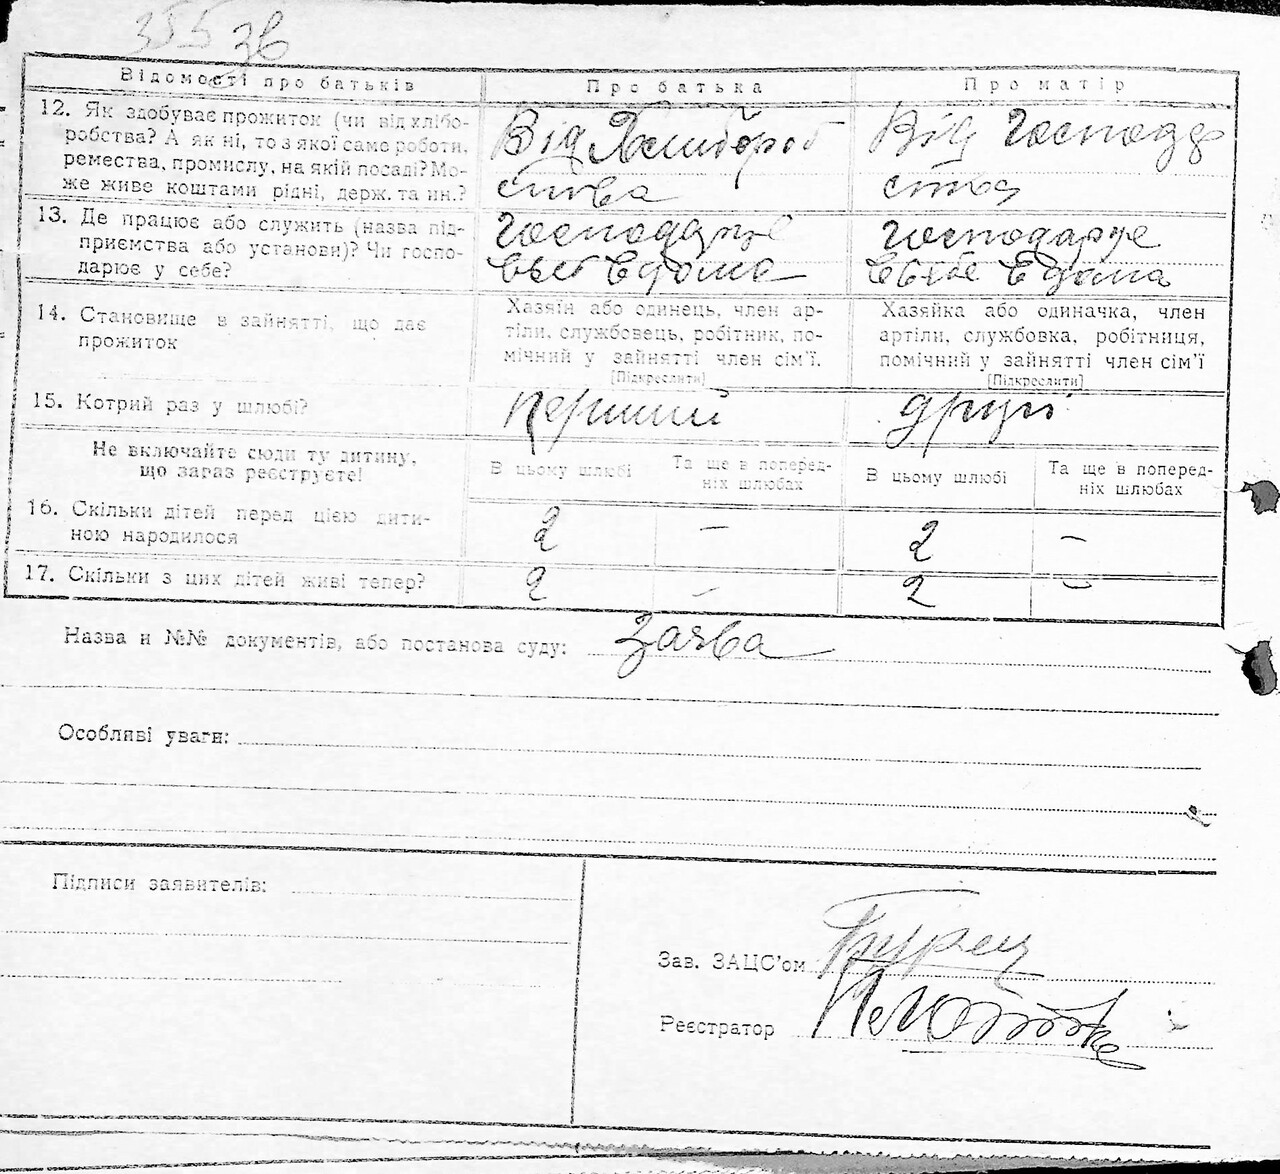 355 зв
Відомості про батьків Про батька Про матір
12. Як здобуває прожиток (чи від хлібо- Від Хлибороб Від Господар
робства? А як ні, то з якої саме роботи, ства ства
ремества, промислу, на якій посаді? Мо-
же живе коштами рідні, держ. та ин.?
13. Де працює або служить (назва під- Господарює Господарує
приємства або установи)? Чи госпо- вдома Вдома
дарює у себе?
14. Становище в зайнятті, що дає
прожиток
Хазяїн або одинець, член ар-
тіли, службовець, робітник, по-
мічний у зайнятті член сім'ї.
[Підкреслити]
Хазяйка або одиначка, член
артіли, службовка, робітниця,
помічний у зайнятті член сім'ї
[Підкреслити]
15. Котрий раз у шлюбі? Перший другі
Не включайте сюди ту дитину,
що зараз реєструєте!
В цьому шлюбі Та ще в поперед-
ніх шлюбах
В цьому шлюбі Та ще в поперед-
ніх шлюбах
16. Скільки дітей перед цією дити- 2 – 2 –
ною народилося
17. Скільки з цих дітей живі тепер? 2 – 2 –
Назва и №№ документів, або постанова суду: Заява
Особливі уваги:
Підписи заявителів:
Зав. ЗАЦС'ом
Реєстратор